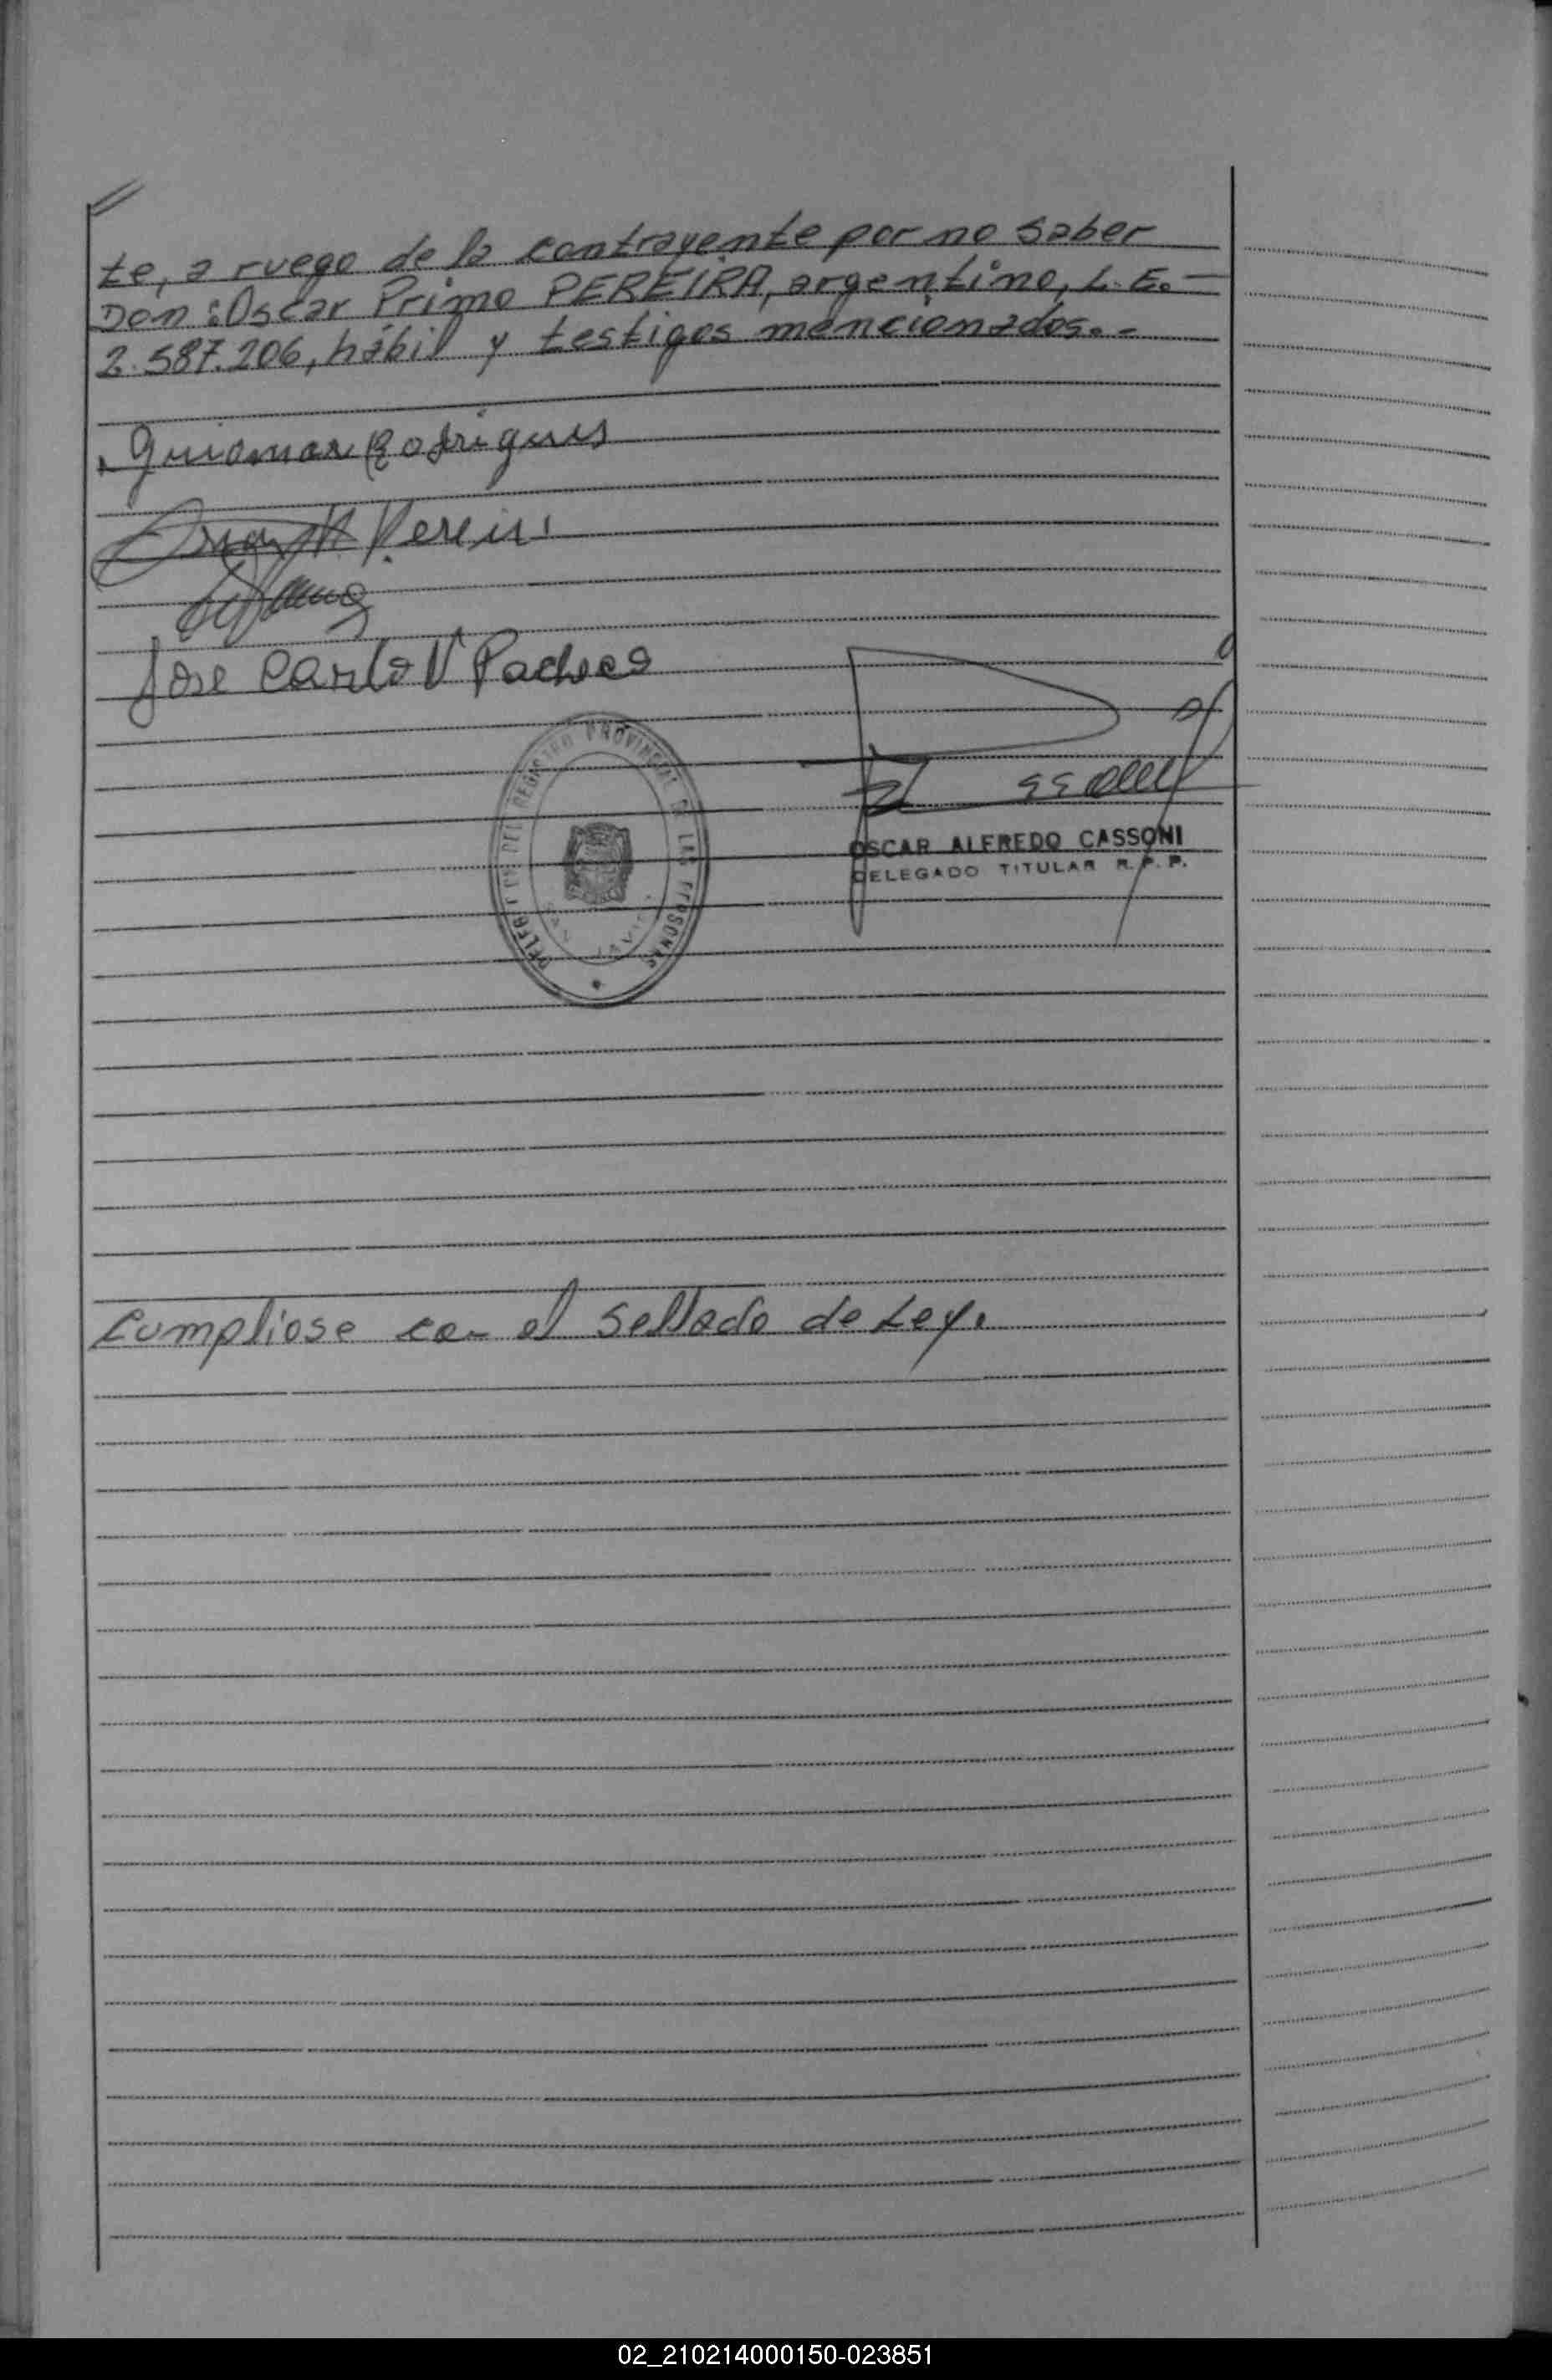 te, a ruego de la contrayente por no saber
Don: Oscar Primo PEREIRA, argentino, L.E.-
2.587.206, hábil y testigos mencionados.-
Guiomar Rodrigues
Pereira
Jose Carlo V Pacheco
DELEGACION DEL REGISTRO PROVINCIAL DE LAS PERSONAS
OSCAR ALFREDO CASSONI
DELEGADO TITULAR R.P.P.
Cumpliose con el sellado de Ley.
02_210214000150-023851